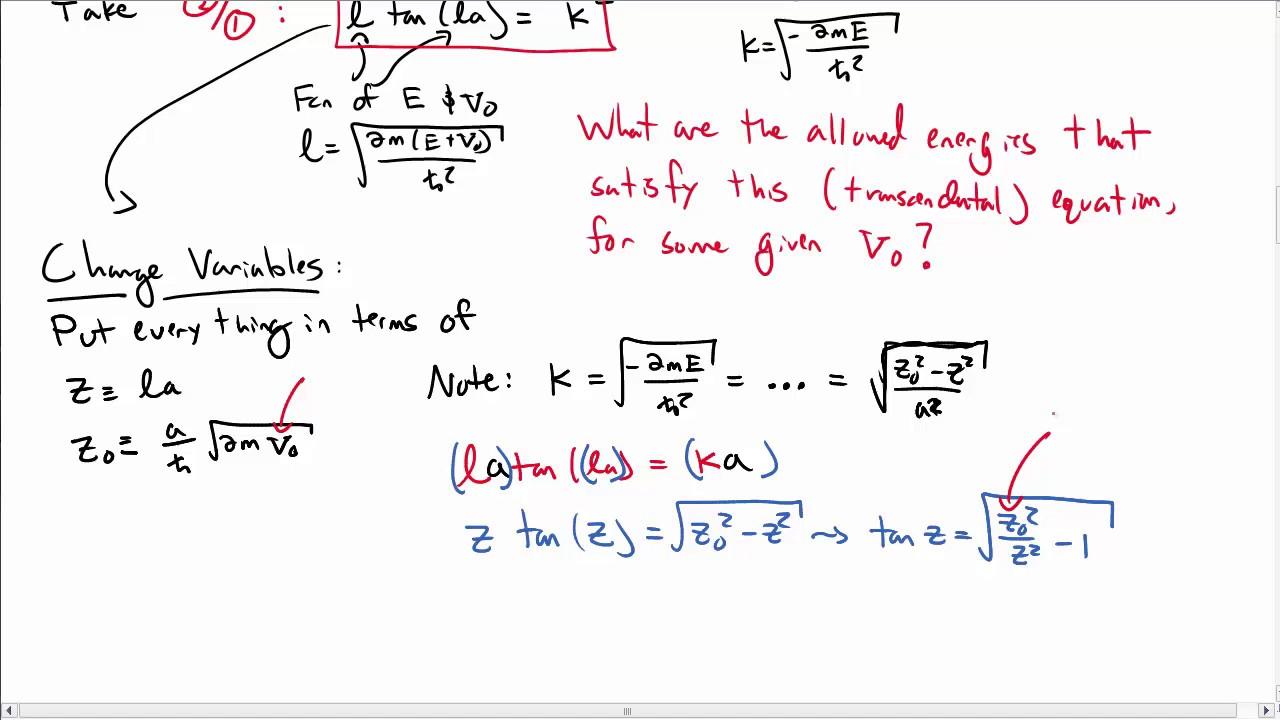 Take ②/① : l tan (la) = K
K = √(-2mE/ħ²)
Fcn of E & V₀
l = √(2m(E+V₀)/ħ²)
What are the allowed energies that
satisfy this (transcendental) equation,
for some given V₀?
Change Variables:
Put everything in terms of
z ≡ la
z₀ ≡ a/ħ √(2mV₀)
Note: K = √(-2mE/ħ²) = ... = √((z₀² - z²)/a²)
(la) tan (la) = (Ka)
z tan (z) = √(z₀² - z²) ⇝ tan z = √(z₀²/z² - 1)